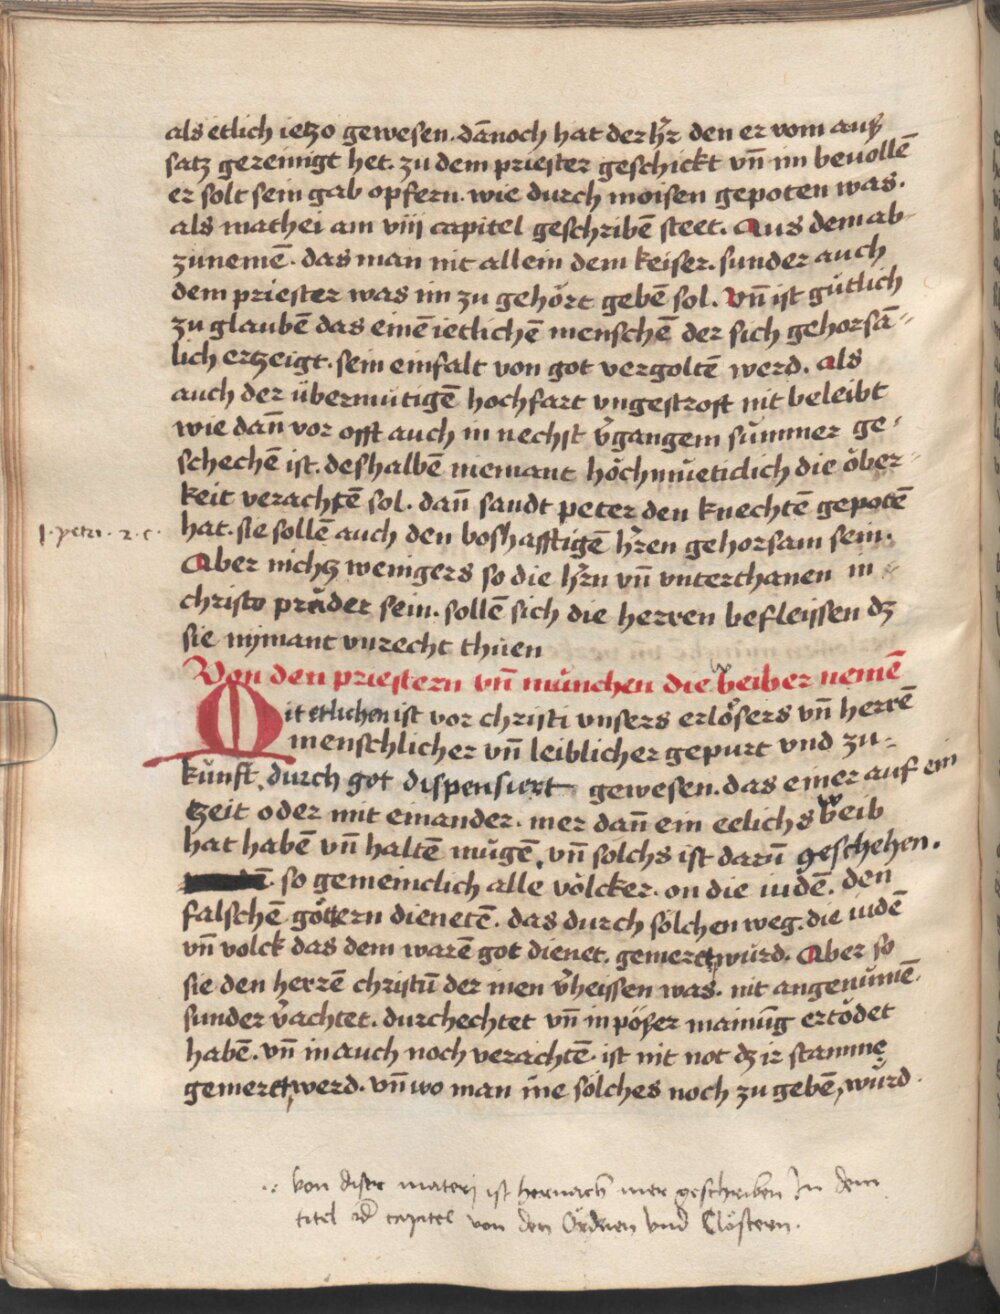 als etlich ietzo gewesen. dānoch hat der h̄r den er vom auß
satz gereinigt het. zu dem priester geschickt vn̄ im beuollē
er solt sein gab opfern. wie durch moisen gepoten was.
als mathei am viij capitel geschribē steet. Aus dem ab
zunemē. das man nit allein dem keiser. sunder auch
dem priester was im zu gehört gebē sol. Vn̄ ist gütlich
zu glaubē das einē ietlichē menschē der sich gehorsā-
lich ertzeigt. sein einfalt von got vergoltē werd. als
auch der übermütigē hochfart vngestroft nit beleibt
wie dan̄ vor offt auch in nechst v̄gangem sum̄er ge-
schechē ist. deshalbē niemant hochmüeticlich die öber-
keit verachtē sol. dan̄ sandt peter den knechtē gepotē
1. petri. 2. c.
hat. sie sollē auch den boshafftigē h̄ren gehorsam sein.
Aber nichtz wenigers so die h̄rn vn̄ vnterthanen in
christo prüder sein. sollē sich die herren befleissen dz
sie nymant vnrecht thüen
Von den priestern vn̄ münchen die weiber nemē
Mit etlichen ist vor christi vnsers erlösers vn̄ herrē
menschlicher vn̄ leiblicher gepurt vnd zu-
kunft, durch got dispensiert gewesen. das einer auf ein
zeit oder mit einander. mer dan̄ ein eelichs weib
hat habē vn̄ haltē mügē, vn̄ solchs ist darū geschehen.
so gemeinclich alle völcker. on die iudē. den
falschē göttern dienetē. das durch solchen weg. die iudē
vn̄ volck das dem warē got dienet. gemert würd. Aber so
sie den herrē christū der inen v̄heissen was. nit angenumē.
sunder v̄achtet. durchechtet vn̄ in pößer mainūg ertödet
habē. vn̄ in auch noch verachtē. ist nit not dz ir stamme
gemert, werd. vn̄ wo man ine solches noch zu gebē, würd.
von diser materj ist hernach mer geschriben In dem
titel capitel von den Örden vnd Clöstern.